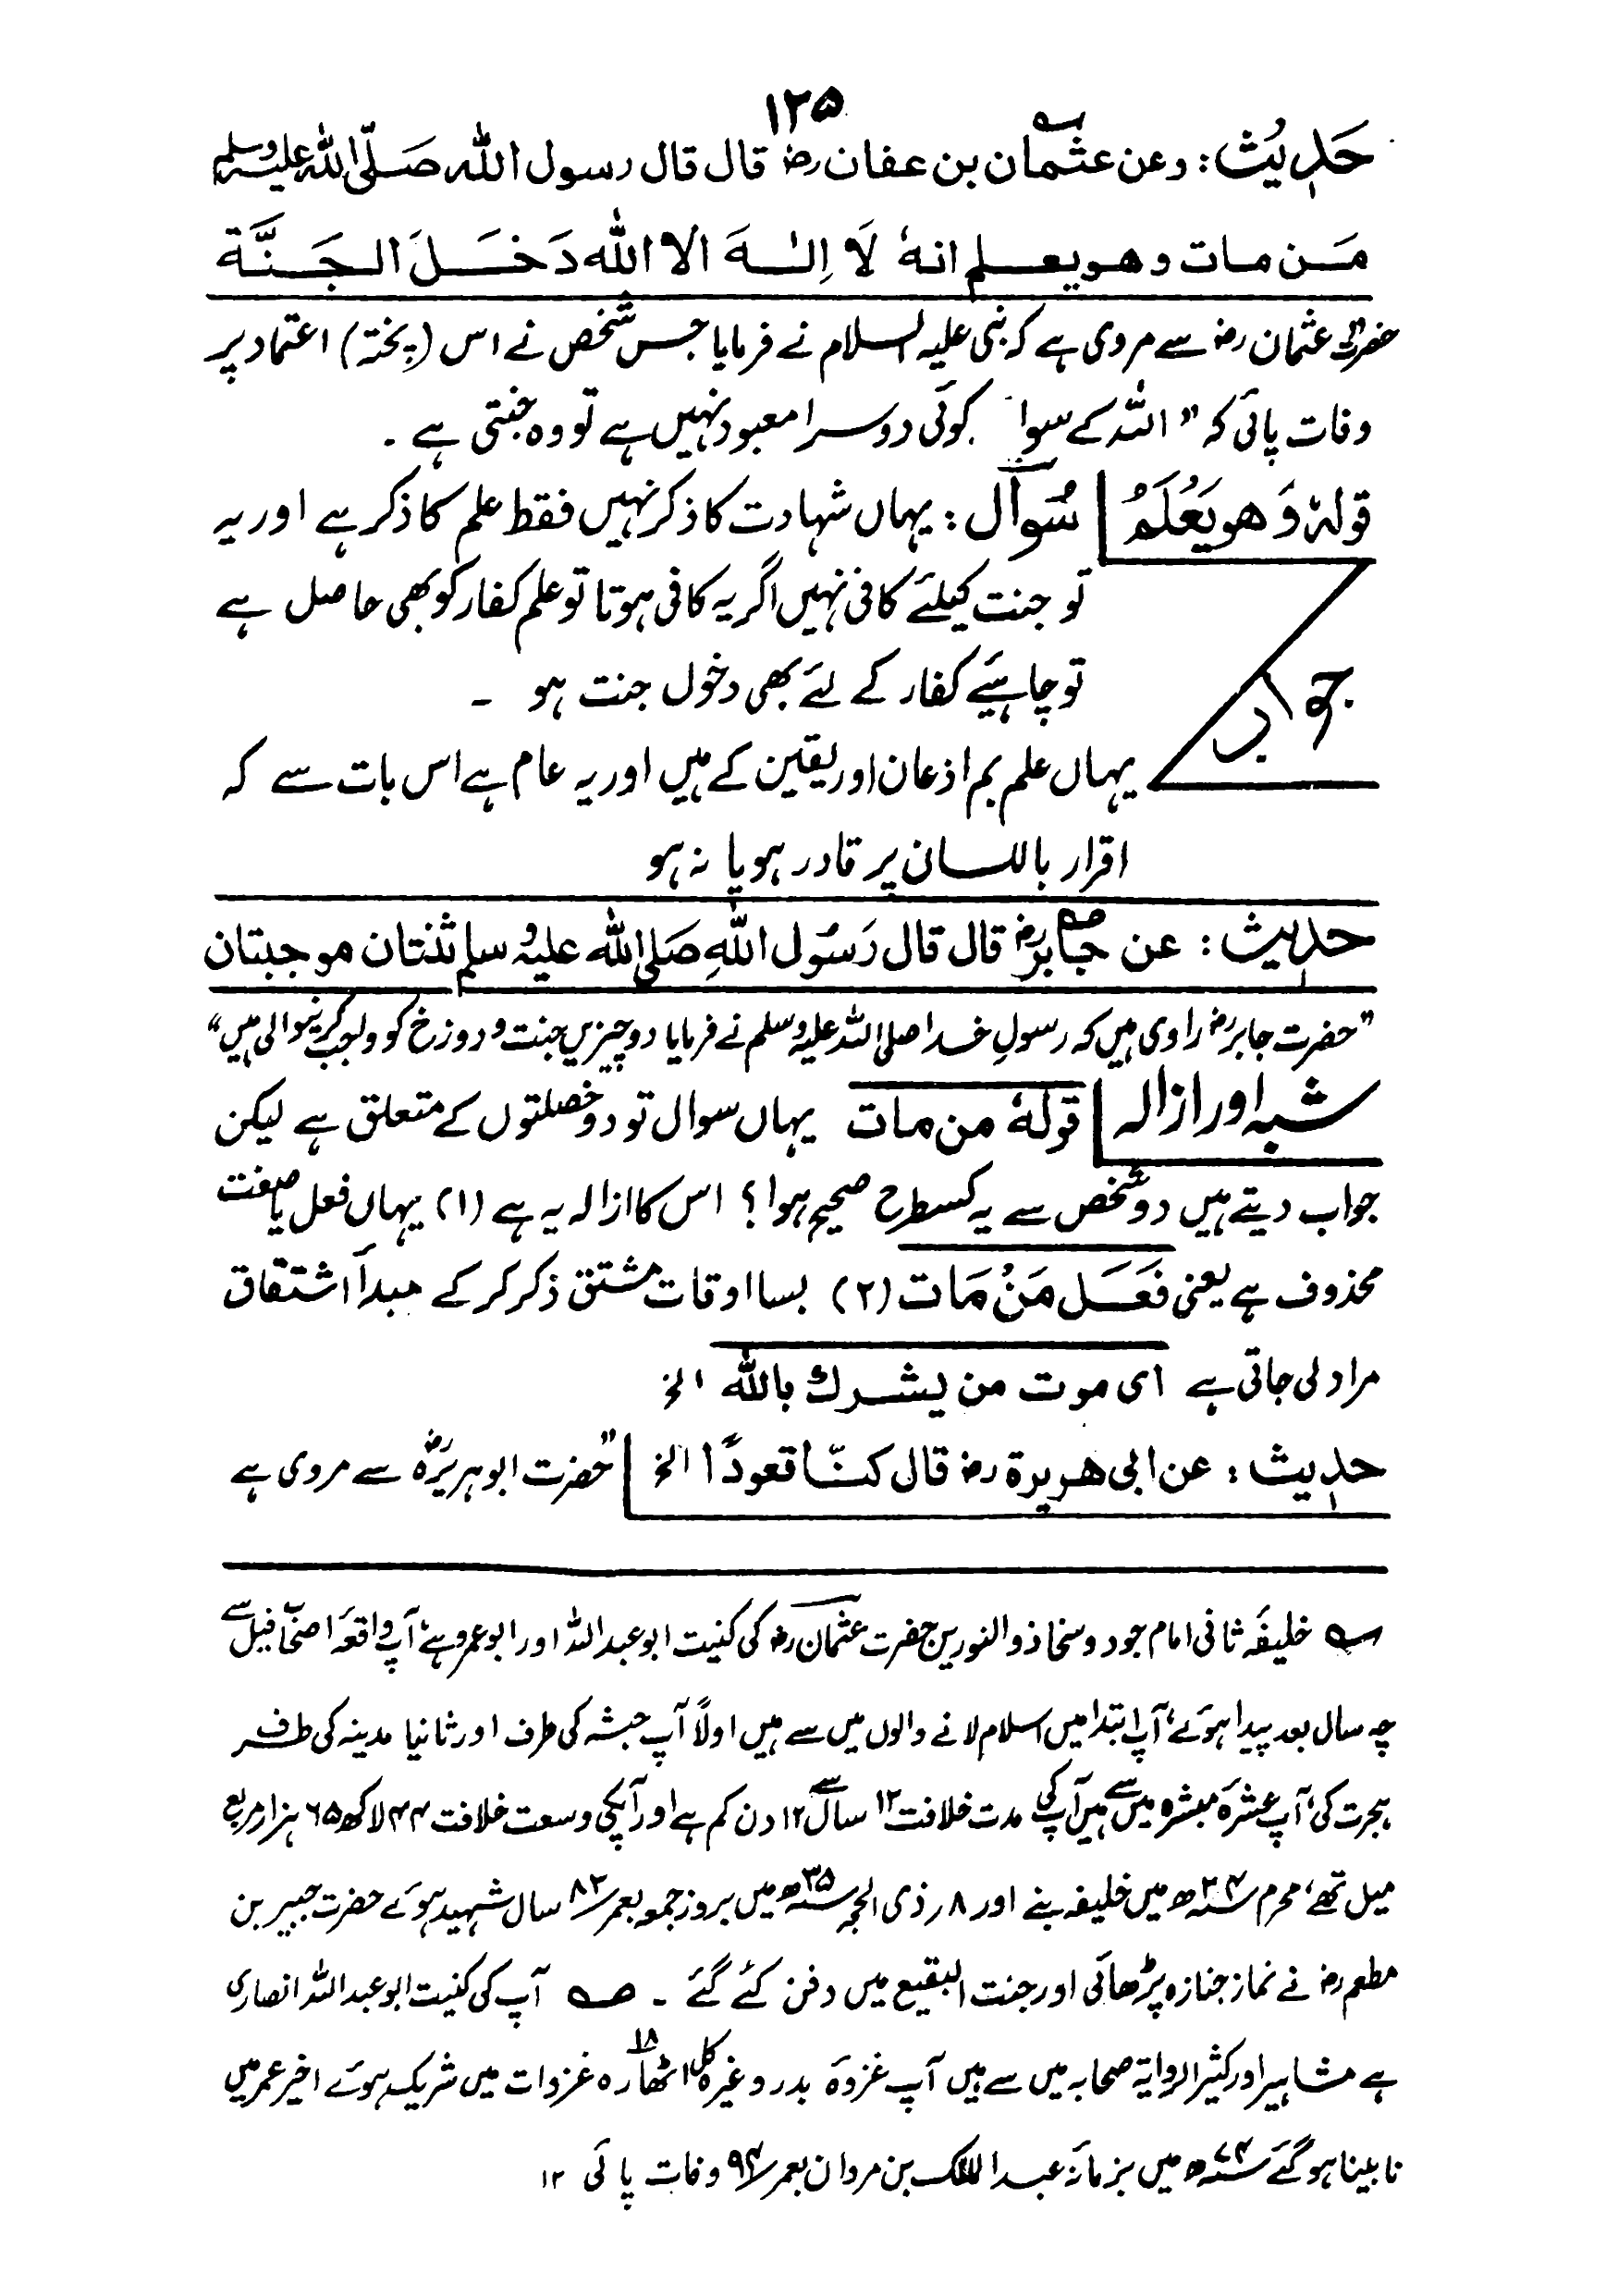 ۱۲۵
حَدِیْث: وعن عثمان بن عفان رض قال قال رسول الله صَلَّی الله علیہ وسلم
مَن مات وهو یعلم انهٗ لَا اِلٰهَ الا الله دَخَلَ الجَنَّة
حضرت عثمان رض سے مروی ہے کہ نبی علیہ السلام نے فرمایا جس شخص نے اس (پختہ) اعتماد پر
وفات پائی کہ ” اللہ کے سوا کوئی دوسرا معبود نہیں ہے تو وہ جنتی ہے ۔
قولهٗ وَهو یَعْلَمُ سُوآل : یہاں شہادت کا ذکر نہیں فقط علم کا ذکر ہے اور یہ
تو جنت کیلئے کافی نہیں اگر یہ کافی ہوتا تو علم کفار کو بھی حاصل ہے
تو چاہئیے کفار کے لئے بھی دخول جنت ہو ۔
جواب یہاں علم بم اذعان اور یقین کے ہیں اور یہ عام ہے اس بات سے کہ
اقرار باللسان پر قادر ہو یا نہ ہو
حدیث : عن جابر رض قال قال رَسُول اللهِ صَلی الله علیہ وسلم ثنتان موجبتان
”حضرت جابر رض راوی ہیں کہ رسولِ خدا صلی اللہ علیہ وسلم نے فرمایا دو چیزیں جنت و دوزخ کو واجب کرنیوالی ہیں“
شبہ اور ازالہ قولهٗ من مات یہاں سوال تو دو خصلتوں کے متعلق ہے لیکن
جواب دیتے ہیں دو شخص سے یہ کسطرح صحیح ہوا ؟ اس کا ازالہ یہ ہے (۱) یہاں فعل یا صفت
محذوف ہے یعنی فَعَل مَنْ مَات (۲) بسا اوقات مشتق ذکر کر کے مبدأ اشتقاق
مراد لی جاتی ہے ای موت من یشرك بالله الخ
حدیث : عن ابی هریرة رض قال کنّا قعودًا الخ ”حضرت ابوہریرہؓ سے مروی ہے
؎ خلیفۂ ثانی امام جود و سخا ذو النورین حضرت عثمان رض کی کنیت ابو عبد اللہ اور ابو عمرو ہے، آپ واقعۂ اصحاب فیل سے
چھ سال بعد پیدا ہوئے، آپ ابتدا میں اسلام لانے والوں میں سے ہیں اولاً آپ حبشہ کی طرف اور ثانیا مدینہ کی طرف
ہجرت کی، آپ عشرہ مبشرہ میں سے ہیں آپ کی مدت خلافت ۱۲ سال سے ۱۲ دن کم ہے اور آپکی وسعت خلافت ۴۴ لاکھ ۶۵ ہزار مربع
میل تھے، محرم سنہ ۲۴ھ میں خلیفہ بنے اور ۸؍ ذی الحجہ سنہ ۳۵ھ میں بروز جمعہ بعمر ۸۲ سال شہید ہوئے حضرت جبیر بن
مطعم رض نے نماز جنازہ پڑھائی اور جنت البقیع میں دفن کئے گئے ۔ ؎ آپ کی کنیت ابو عبد اللہ انصاری
ہے مشاہیر اور کثیر الروایۃ صحابہ میں سے ہیں آپ غزوۂ بدر وغیرہ کل اٹھارہ ۱۸ غزوات میں شریک ہوئے اخیر عمر میں
نابینا ہو گئے سنہ ۷۴ھ میں بزمانۂ عبد الملک بن مروان بعمر ۹۴ وفات پائی ۱۲